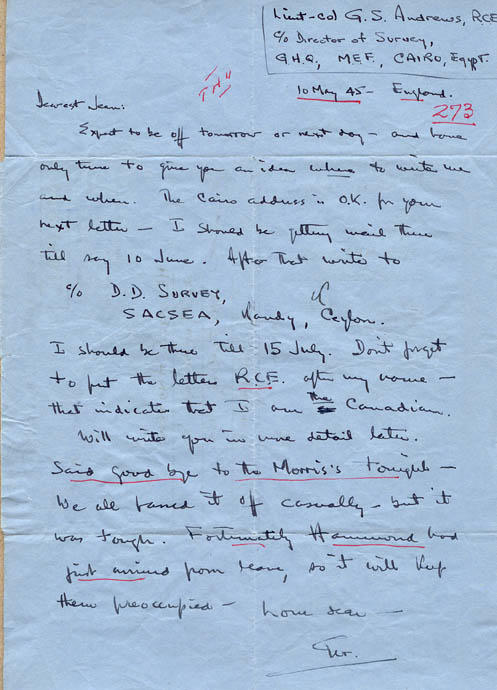 Lieut-Col G. S. Andrews, RCE
c/o Director of Survey,
GHQ, MEF, CAIRO, Egypt.
10 May 45 - England.
273
Dearest Jean:
Expect to be off tomorrow or next day - and have
only time to give you an idea where to write me
and when. The Cairo address is O.K. for your
next letter - I should be getting mail there
till say 10 June. After that write to
c/o D.D. SURVEY,
SACSEA, Kandy, Ceylon.
I should be there till 15 July. Don't forget
to put the letters R.C.E. after my name -
that indicates that I am the Canadian.
Will write you in more detail later.
Said good bye to the Morris's tonight -
We all passed it off casually - but it
was tough. Fortunately Hammond had
just arrived from leave, so it will keep
them preoccupied - love dear -